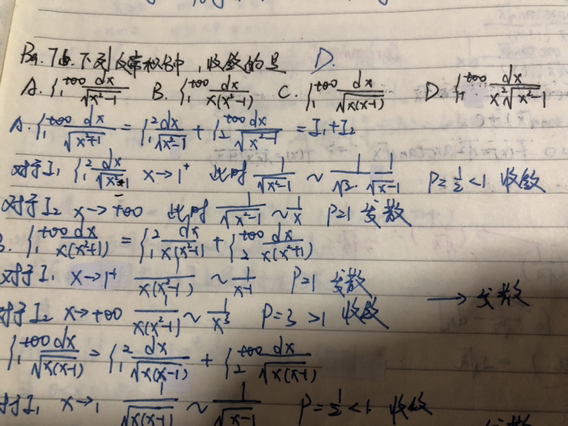 P4. 7b. 下列反常积分中,收敛的是 D.
A. ∫₁^{+∞} dx/√(x²-1) B. ∫₁^{+∞} dx/(x(x²-1)) C. ∫₁^{+∞} dx/√(x(x-1)) D. ∫₁^{+∞} dx/(x²√(x²-1))
A. ∫₁^{+∞} dx/√(x²-1) = ∫₁² dx/√(x²-1) + ∫₂^{+∞} dx/√(x²-1) = I₁+I₂
对于I₁ ∫₁² dx/√(x²-1) x→1⁺ 此时 1/√(x²-1) ~ 1/√2 · 1/√(x-1) P=1/2<1 收敛
对于I₂ x→+∞ 此时 1/√(x²-1) ~ 1/x P=1 发散
B. ∫₁^{+∞} dx/(x(x²-1)) = ∫₁² dx/(x(x²-1)) + ∫₂^{+∞} dx/(x(x²-1))
对于I₁ x→1⁺ 1/(x(x²-1)) ~ 1/(x-1) P=1 发散
对于I₂ x→+∞ 1/(x(x²-1)) ~ 1/x³ P=3>1 收敛 → 发散
∫₁^{+∞} dx/√(x(x-1)) = ∫₁² dx/√(x(x-1)) + ∫₂^{+∞} dx/√(x(x-1))
对于I₁ x→1 1/√(x(x-1)) ~ 1/√(x-1) P=1/2<1 收敛